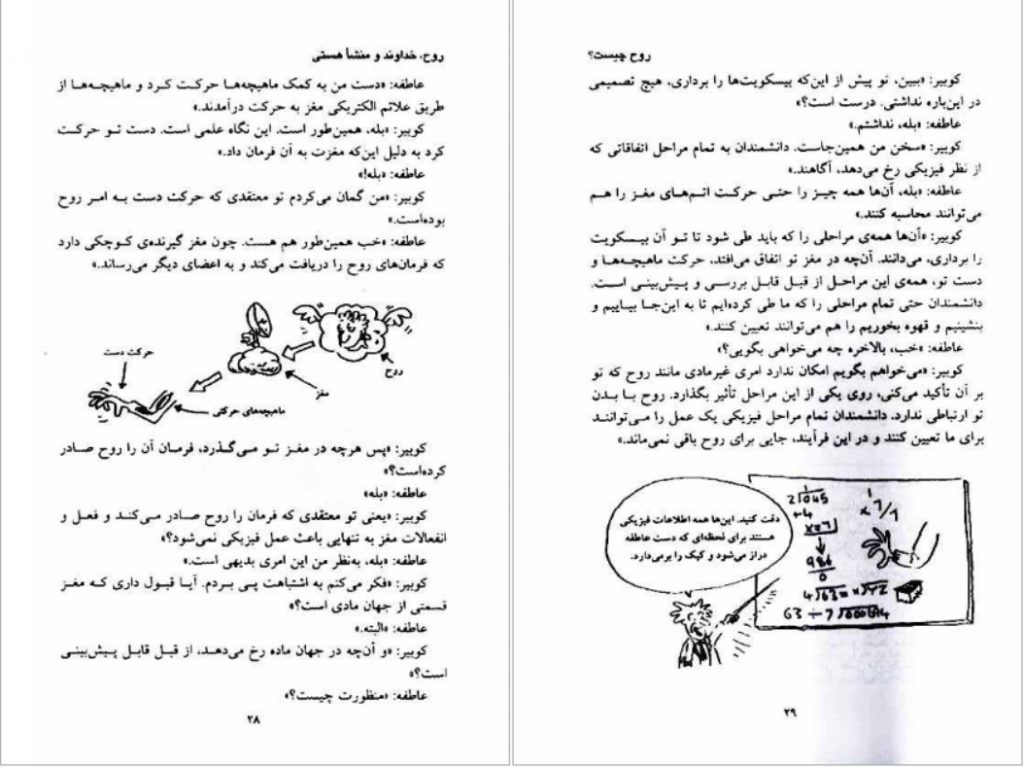 روح، خداوند و منشأ هستی
عاطفه: «دست من به کمک ماهیچه‌ها حرکت کرد و ماهیچه‌ها از
طریق علائم الکتریکی مغز به حرکت درآمدند.»
کوبیر: «بله، همین‌طور است. این نگاه علمی است. دست تو حرکت
کرد به دلیل این‌که مغزت به آن فرمان داد.»
عاطفه: «بله!»
کوبیر: «من گمان می‌کردم تو معتقدی که حرکت دست به امر روح
بوده‌است.»
عاطفه: «خب همین‌طور هم هست. چون مغز گیرنده‌ی کوچکی دارد
که فرمان‌های روح را دریافت می‌کند و به اعضای دیگر می‌رساند.»
حرکت دست
روح
مغز
ماهیچه‌های حرکتی
کوبیر: «پس هرچه در مغز تو می‌گذرد، فرمان آن را روح صادر
کرده‌است؟»
عاطفه: «بله»
کوبیر: «یعنی تو معتقدی که فرمان را روح صادر می‌کند و فعل و
انفعالات مغز به تنهایی باعث عمل فیزیکی نمی‌شود؟»
عاطفه: «بله، به‌نظر من این امری بدیهی است.»
کوبیر: «فکر می‌کنم به اشتباهت پی بردم. آیا قبول داری که مغز
قسمتی از جهان مادی است؟»
عاطفه: «البته.»
کوبیر: «و آن‌چه در جهان ماده رخ می‌دهد، از قبل قابل پیش‌بینی
است؟»
عاطفه: «منظورت چیست؟»
۲۸
روح چیست؟
کوبیر: «ببین، تو پیش از این‌که بیسکویت‌ها را برداری، هیچ تصمیمی
در این‌باره نداشتی. درست است؟»
عاطفه: «بله، نداشتم.»
کوبیر: «سخن من همین‌جاست. دانشمندان به تمام مراحل اتفاقاتی که
از نظر فیزیکی رخ می‌دهد، آگاهند.»
عاطفه: «بله، آن‌ها همه چیز را حتی حرکت اتم‌های مغز را هم
می‌توانند محاسبه کنند.»
کوبیر: «آن‌ها همه‌ی مراحلی را که باید طی شود تا تو آن بیسکویت
را برداری، می‌دانند. آن‌چه در مغز تو اتفاق می‌افتد، حرکت ماهیچه‌ها و
دست تو، همه‌ی این مراحل از قبل قابل بررسی و پیش‌بینی است.
دانشمندان حتی تمام مراحلی را که ما طی کرده‌ایم تا به این‌جا بیاییم و
بنشینیم و قهوه بخوریم را هم می‌توانند تعیین کنند.»
عاطفه: «خب، بالاخره چه می‌خواهی بگویی؟»
کوبیر: «می‌خواهم بگویم امکان ندارد امری غیرمادی مانند روح که تو
بر آن تأکید می‌کنی، روی یکی از این مراحل تأثیر بگذارد. روح با بدن
تو ارتباطی ندارد. دانشمندان تمام مراحل فیزیکی یک عمل را می‌توانند
برای ما تعیین کنند و در این فرآیند، جایی برای روح باقی نمی‌ماند.»
دقت کنید. این‌ها همه اطلاعات فیزیکی
هستند برای لحظه‌ای که دست عاطفه
دراز می‌شود و کیک را برمی‌دارد.
۲۹